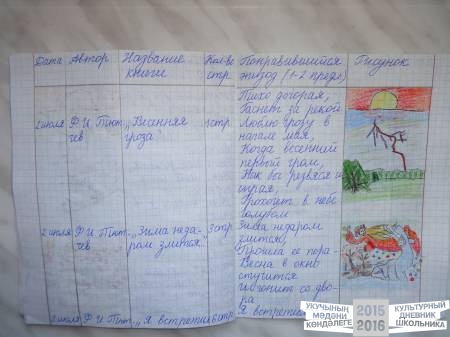 Дата Автор Название книги Кол-во стр. Понравившийся эпизод (1-2 предл) Рисунок
2 июля Ф. И Тют-чев „Весенняя гроза" 1стр
Тихо догорая,
Гаснет за рекой
Люблю грозу в
начале мая,
Когда весенний
первый гром,
Как бы резвяся и
играя,
Грохочит в небе
голубом
2 июля Ф. И Тют-чев „Зима неда-ром злится" 3стр
Зима недаром
злится,
Прошла её пора-
Весна в окно
стучится
И гонит со дво-
ра
июля Ф. И Тют- „Я встретил стр Я встретил
УКУЧЫНЫҢ
МӘДӘНИ
КӨНДӘЛЕГЕ
2015
2016
КУЛЬТУРНЫЙ
ДНЕВНИК
ШКОЛЬНИКА